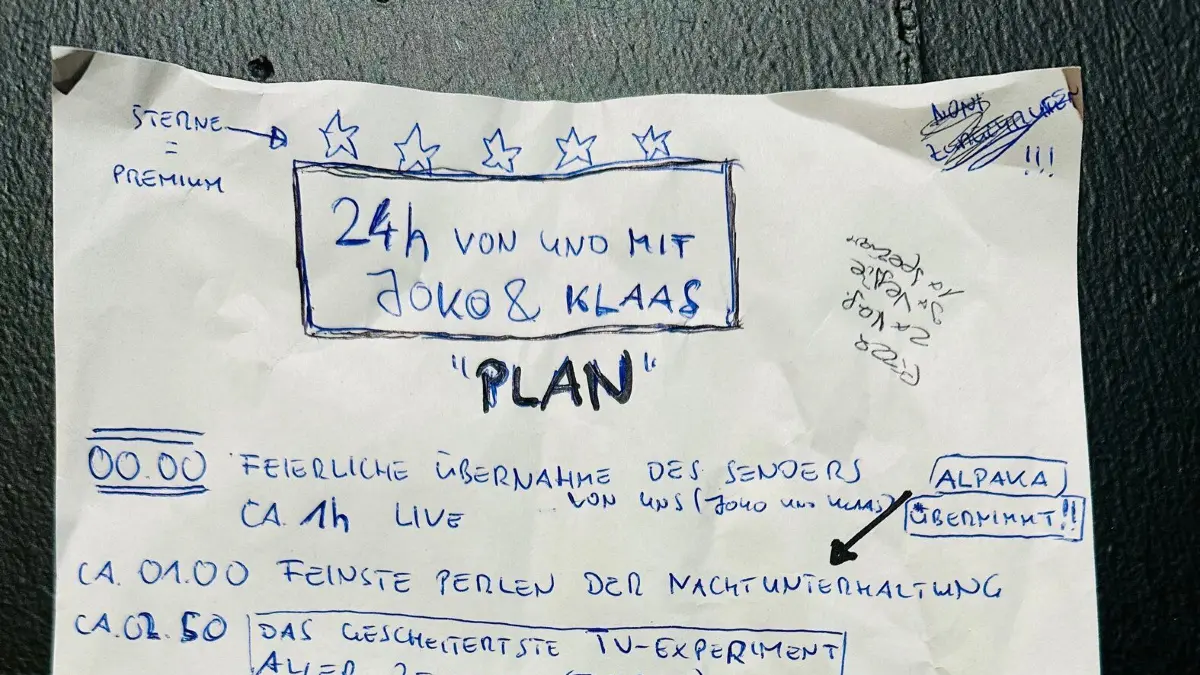 STERNE
=
PREMIUM
!!!
24h VON UND MIT
JOKO & KLAAS
"PLAN"
PIZZA
2x Vog.
3x Veggie
1x Speziar
00.00 FEIERLICHE ÜBERNAHME DES SENDERS
VON UNS (JOKO UND KLAAS)
CA. 1h LIVE
ALPAKA
ÜBERNIMMT!!
CA. 01.00 FEINSTE PERLEN DER NACHTUNTERHALTUNG
CA. 02.50 DAS GESCHEITERTSTE TV-EXPERIMENT
ALLER